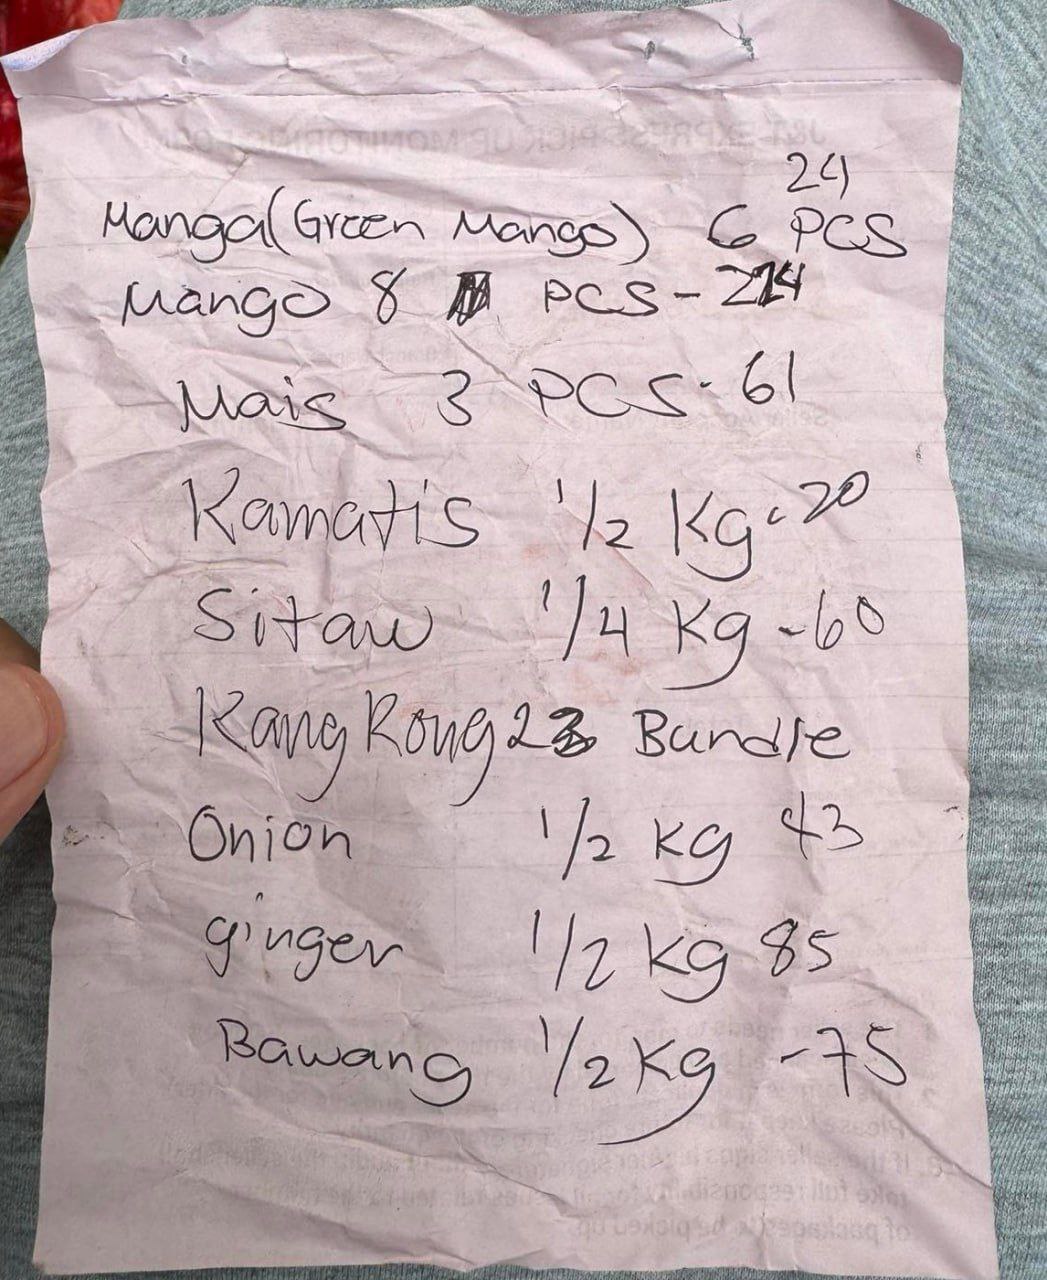 24
Manga (Green Mango) 6 PCS
Mango 8 PCS - 224
Mais 3 PCS - 61
Kamatis 1/2 Kg - 20
Sitaw 1/4 Kg - 60
Kang Kong 2 Bundle
Onion 1/2 Kg 43
ginger 1/2 Kg 85
Bawang 1/2 Kg - 75